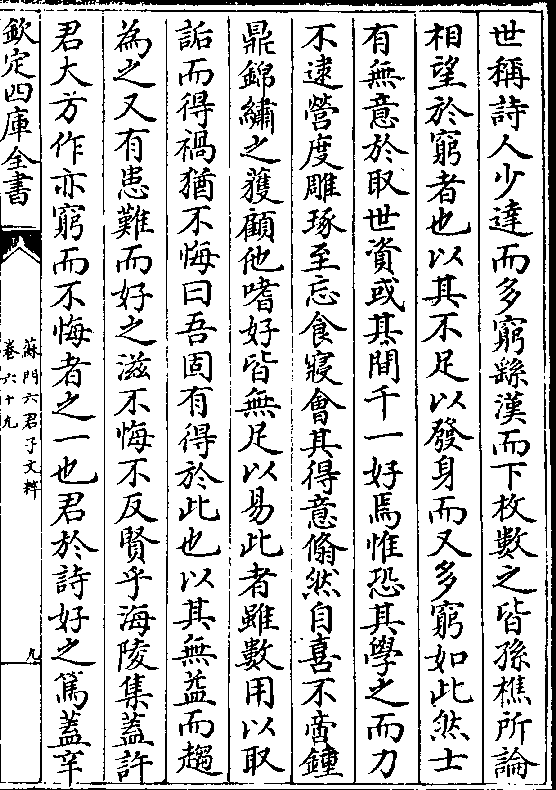 世稱詩人少達而多窮繇漢而下枚數之皆孫樵所論
相望於窮者也以其不足以發身而又多窮如此然士
有無意於取世資或其間千一好焉惟恐其學之而力
不逮營度雕琢至忘食寢會其得意翛然自喜不啻鍾
鼎錦繡之獲顧他嗜好皆無足以易此者雖數用以取
詬而得禍猶不悔曰吾固有得於此也以其無益而趨
為之又有患難而好之滋不悔不反賢乎海陵集蓋許
君大方作亦窮而不悔者之一也君於詩好之篤蓋辛
欽定四庫全書
蘇門六君子文粹
卷六十九
九